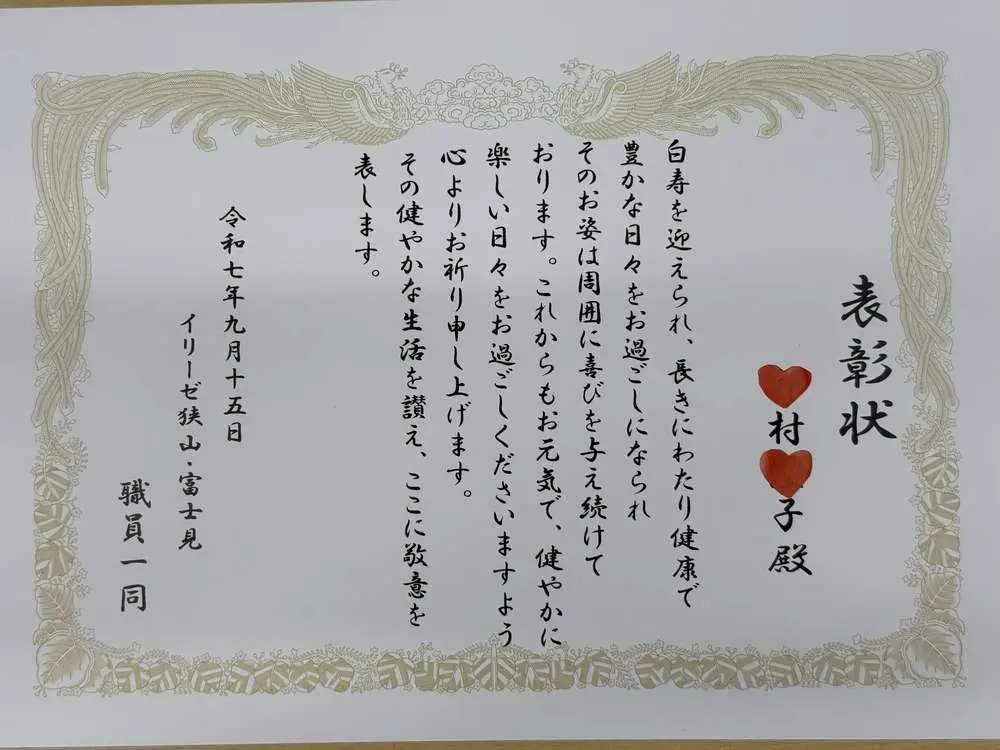 表彰状
村
子殿
白寿を迎えられ、長きにわたり健康で
豊かな日々をお過ごしになられ
そのお姿は周囲に喜びを与え続けて
おります。これからもお元気で、健やかに
楽しい日々をお過ごしくださいますよう
心よりお祈り申し上げます。
その健やかな生活を讃え、ここに敬意を
表します。
令和七年九月十五日
イリーゼ狭山・富士見
職員一同